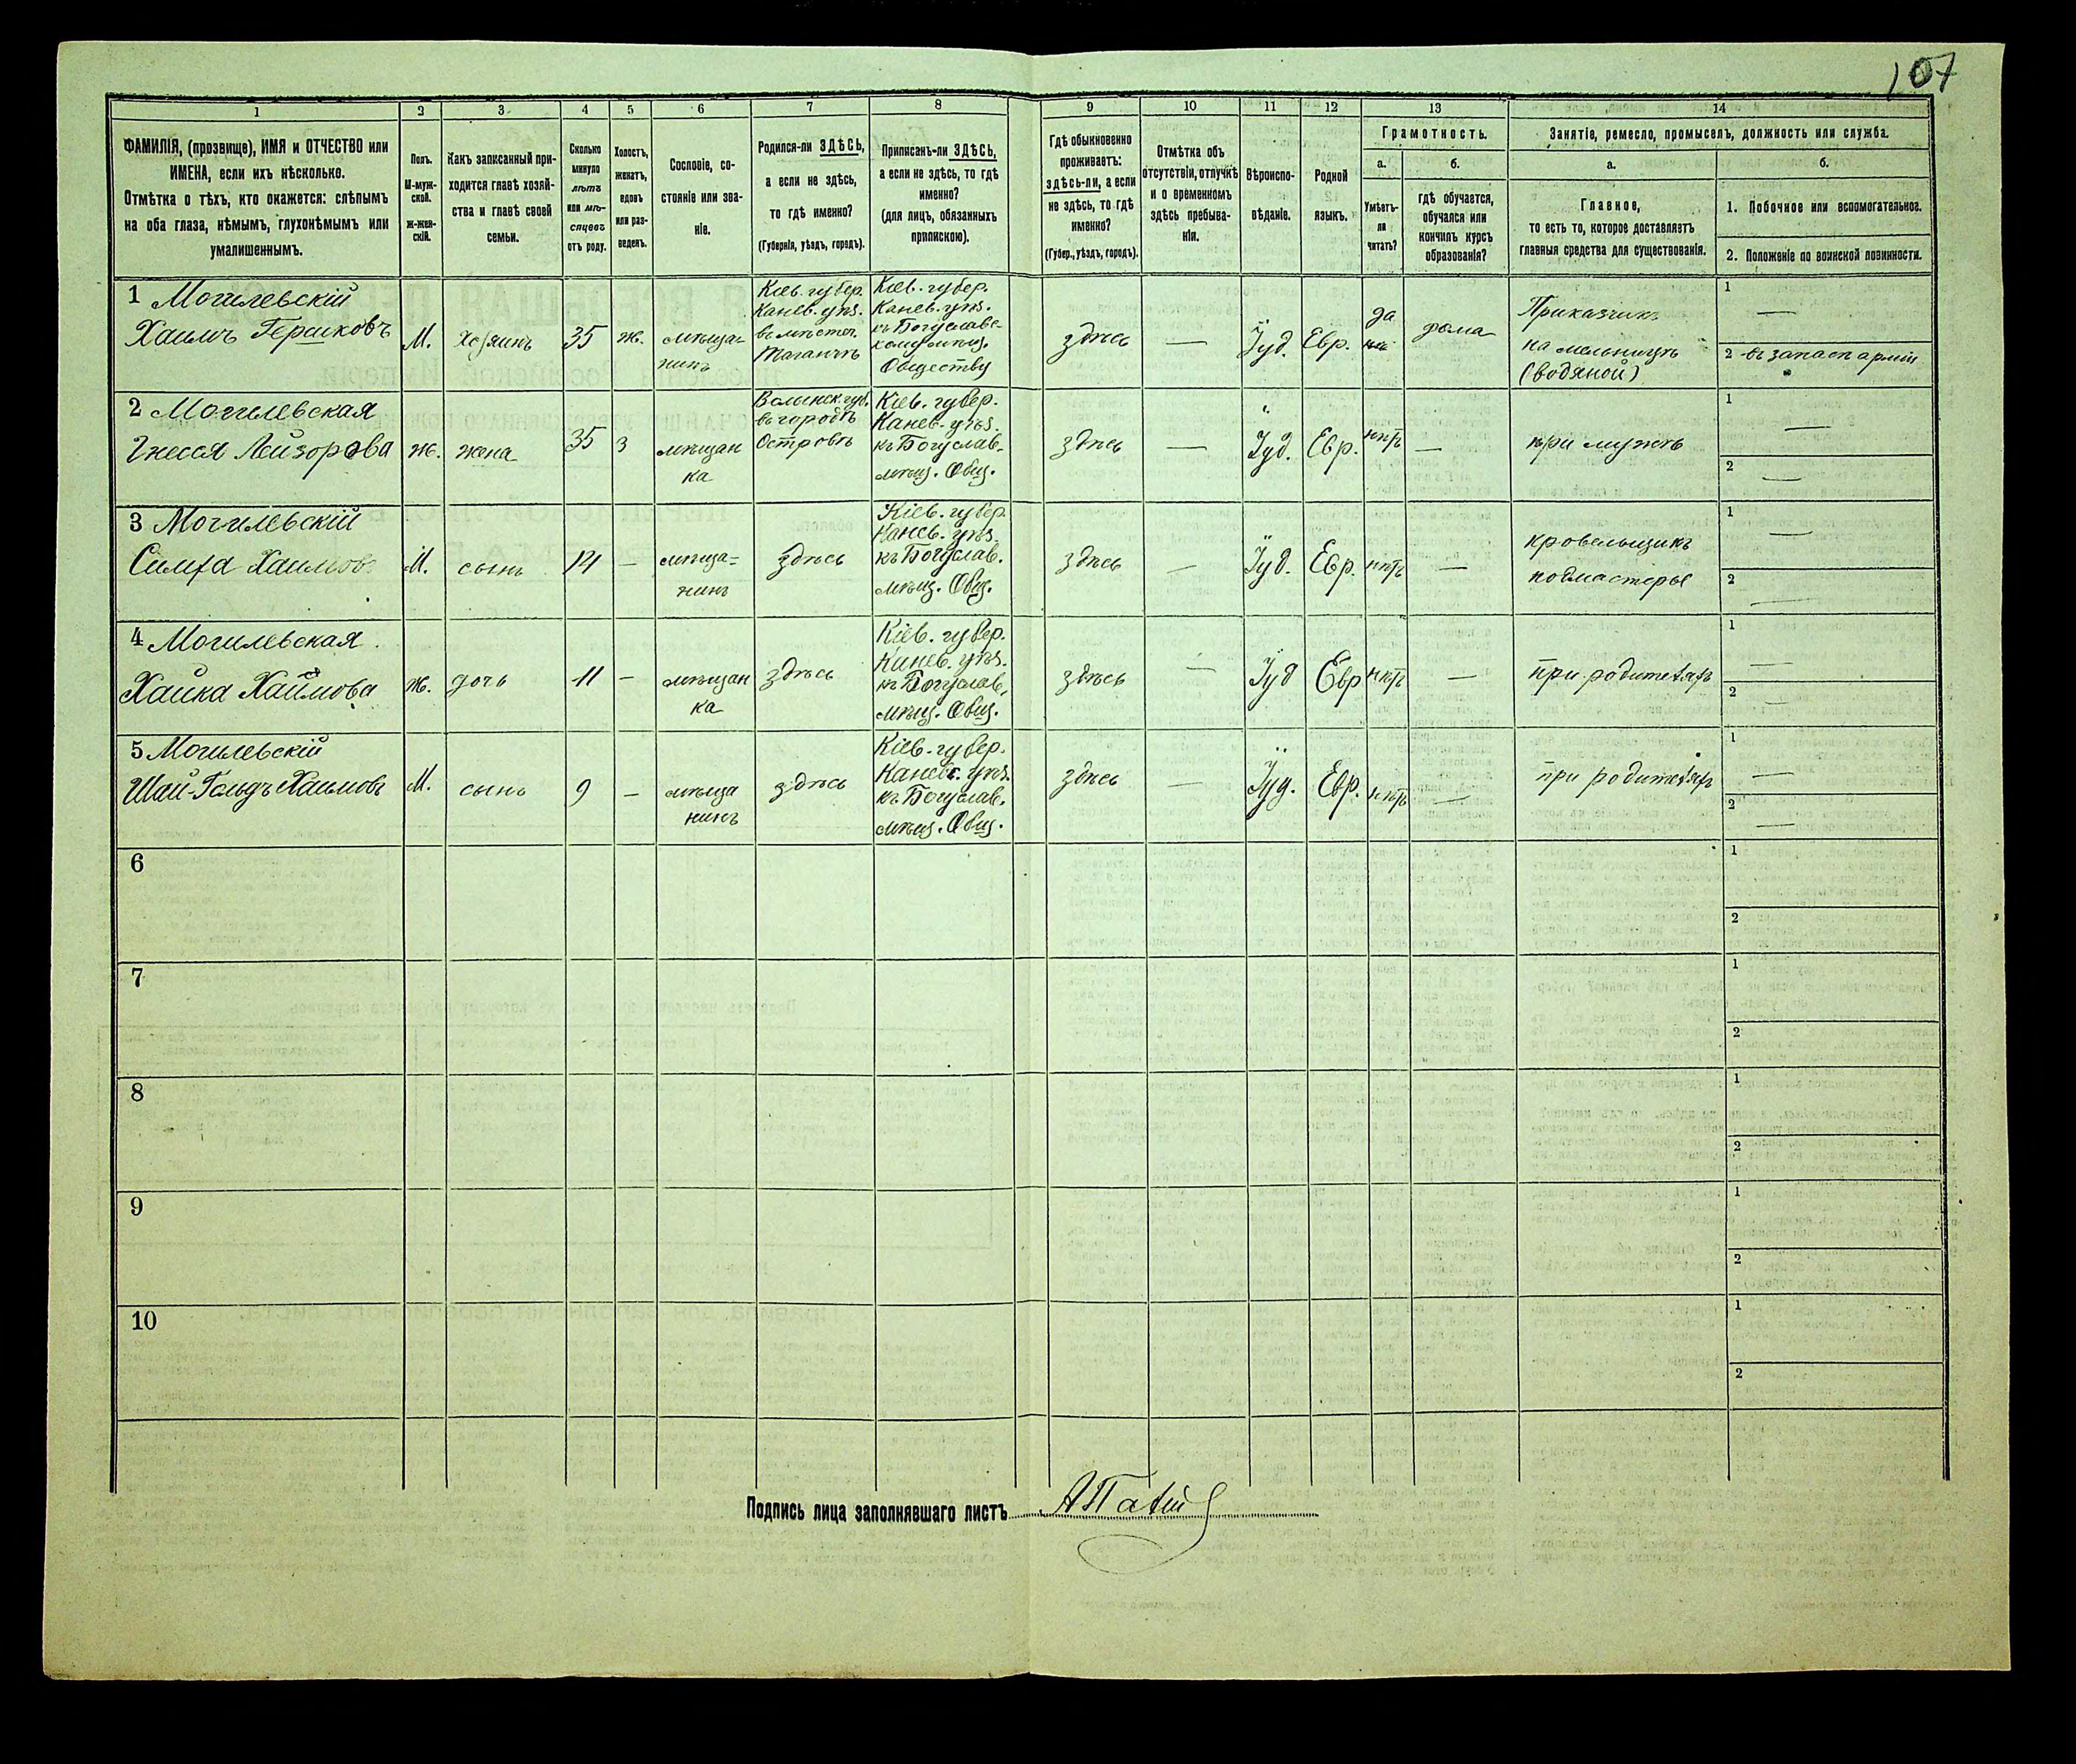 107
1
2
3
4
5
6
7
8
9
10
11
12
13
14
ФАМИЛІЯ, (прозвище), ИМЯ и ОТЧЕСТВО или
ИМЕНА, если ихъ нѣсколько.
Отмѣтка о тѣхъ, кто окажется: слѣпымъ
на оба глаза, нѣмымъ, глухонѣмымъ или
умалишеннымъ.
Полъ.
М-муж-
ской.
Ж-жен-
скій.
Какъ записанный при-
ходится главѣ хозяй-
ства и главѣ своей
семьи.
Сколько
минуло
лѣтъ
или мѣ-
сяцевъ
отъ роду.
Холостъ,
женатъ,
вдовъ
или раз-
веденъ.
Сословіе, со-
стояніе или зва-
ніе.
Родился-ли ЗДѢСЬ,
а если не здѣсь,
то гдѣ именно?
(Губернія, уѣздъ, городъ).
Приписанъ-ли ЗДѢСЬ,
а если не здѣсь, то гдѣ
именно?
(для лицъ, обязанныхъ
припискою).
Гдѣ обыкновенно
проживаетъ:
здѣсь-ли, а если
не здѣсь, то гдѣ
именно?
(Губер., уѣздъ, городъ).
Отмѣтка объ
отсутствіи, отлучкѣ
и о временномъ
здѣсь пребыва-
ніи.
Вѣроиспо-
вѣданіе.
Родной
языкъ.
Грамотность.
а.
Умѣетъ-
ли
читать?
б.
гдѣ обучается,
обучался или
кончилъ курсъ
образованія?
Занятіе, ремесло, промыселъ, должность или служба.
а.
Главное,
то есть то, которое доставляетъ
главныя средства для существованія.
б.
1. Побочное или вспомогательное.
2. Положеніе по воинской повинности.
1 Могилевскій
Хаимъ Гершковъ
М.
хозяинъ
35
ж.
мѣща-
нинъ
Кіев. губер.
Канев. уѣз.
въ мѣстеч.
Таганчѣ
Кіев. губер.
Канев. уѣз.
къ Богуславс-
кому мѣщ.
Обществу
здѣсь
—
Іуд.
Евр.
да
дома
Приказчикъ
на мельницѣ
(водяной)
1 —
2 въ запасѣ арміи
2 Могилевская
Гнеся Лейзорова
ж.
жена
35
З
мѣщан
ка
Волынск губ.
въ городѣ
Островѣ
Кіев. губер.
Канев. уѣз.
къ Богуслав.
мѣщ. Общ.
здѣсь
—
Іуд.
Евр.
нѣтъ
—
при мужѣ
1 —
2 —
3 Могилевскій
Симха Хаимовъ
М.
сынъ
14
—
мѣща=
нинъ
здѣсь
Кіев. губер.
Канев. уѣз.
къ Богуслав.
мѣщ. Общ.
здѣсь
—
Іуд.
Евр.
нѣтъ
—
кровельщикъ
подмастерье
1 —
2 —
4 Могилевская
Хайка Хаимова
ж.
дочь
11
—
мѣщан
ка
здѣсь
Кіев. губер.
Канев. уѣз.
къ Богуслав.
мѣщ. Общ.
здѣсь
—
Іуд
Евр
нѣтъ
—
при родителяхъ
1 —
2 —
5 Могилевскій
Шай-Гольдъ Хаимовъ
М.
сынъ
9
—
мѣща
нинъ
здѣсь
Кіев. губер.
Канев. уѣз.
къ Богуслав.
мѣщ. Общ.
здѣсь
—
Іуд.
Евр.
нѣтъ
—
при родителяхъ
1 —
2 —
6
1
2
7
1
2
8
1
2
9
1
2
10
1
2
Подпись лица заполнявшаго листъ